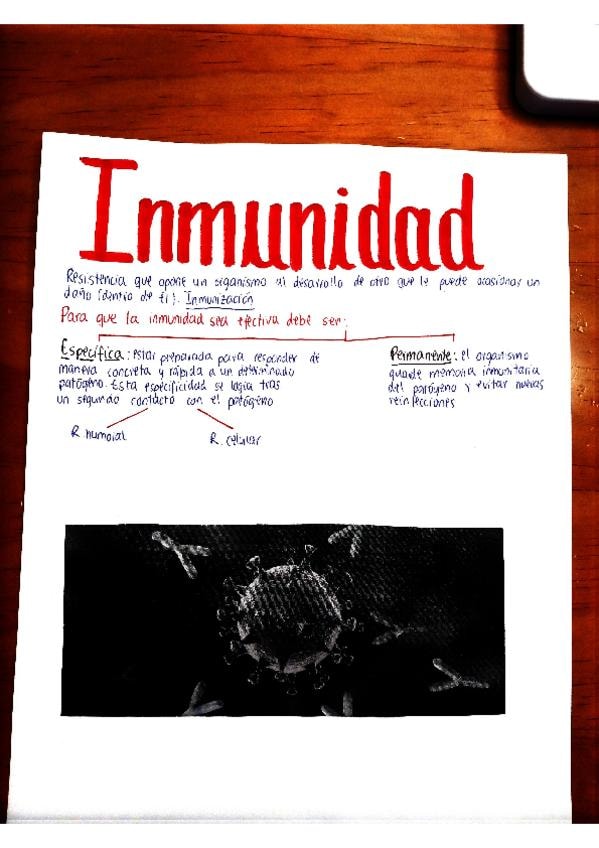 Inmunidad
Resistencia que opone un organismo al desarrollo de otro que le puede ocasionar un
daño (dentro de él). Inmunización
Para que la inmunidad sea efectiva debe ser:
Específica: Estar preparada para responder de
manera concreta y rápida a un determinado
patógeno. Esta especificidad se logra tras
un segundo contacto con el patógeno
R. humoral
R. celular
Permanente: el organismo
guarde memoria inmunitaria
del patógeno y evitar nuevas
reinfecciones